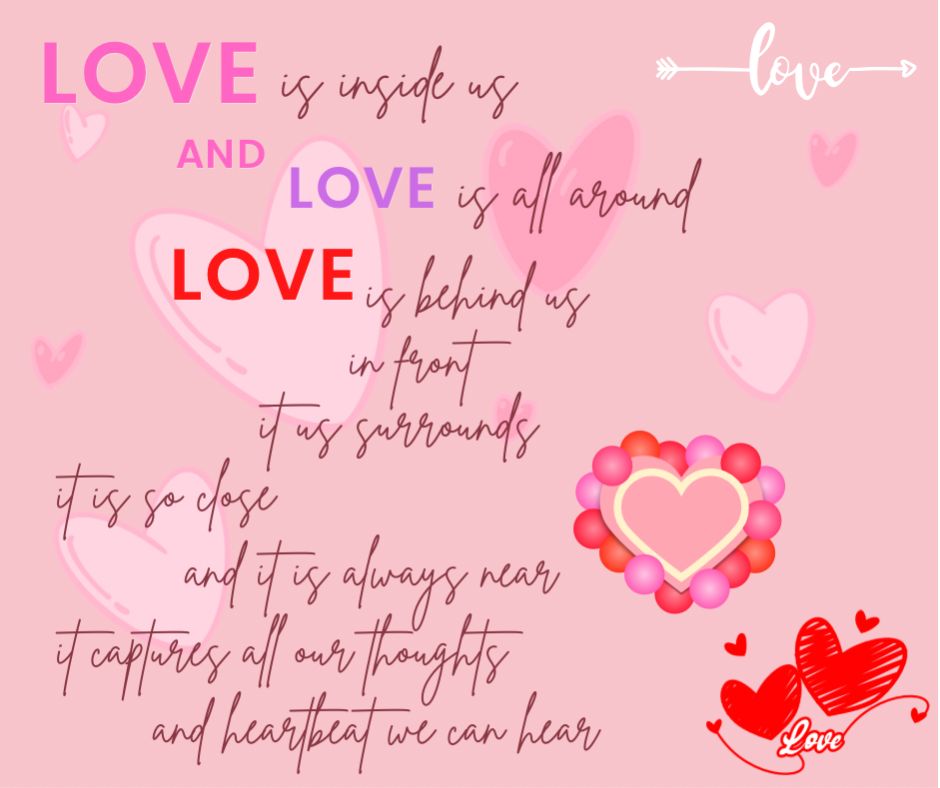 LOVE is inside us
love
AND
LOVE is all around
LOVE is behind us
in front
it us surrounds
it is so close
and it is always near
it captures all our thoughts
and heartbeat we can hear
Love